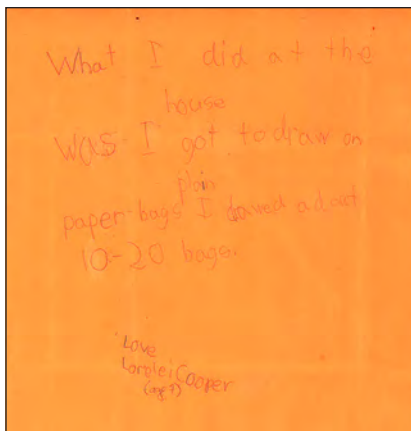 What I did at the
house
was I got to draw on
plain
paper-bags I drawed adout
10-20 bags.
Love
Lorelei Cooper
(age 7)